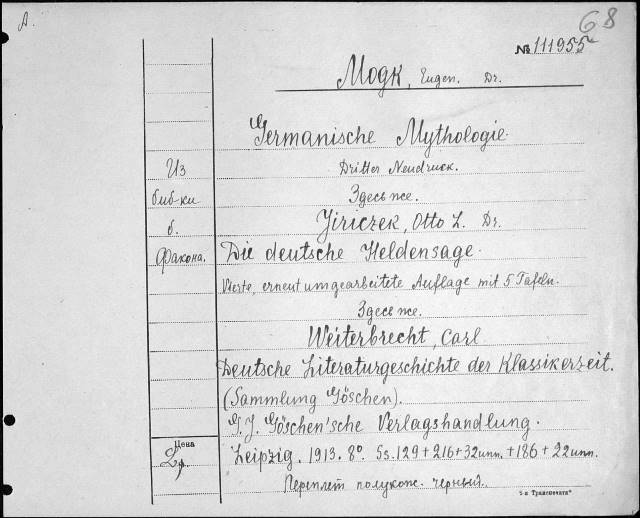 A.
68
№ 111955
Модк, Eugen. Dr.
Germanische Mythologie.
Из
Dritter Neudruck.
биб-ки
Здесь же.
б.
Jiriczek, Otto L. Dr.
Факона.
Die deutsche Heldensage.
Vierte, erneut umgearbeitete Auflage mit 5 Tafeln.
Здесь же.
Weiterbrecht, Carl
Deutsche Literaturgeschichte der Klassikerzeit.
(Sammlung Göschen).
G. J. Göschen'sche Verlagshandlung.
Цена
2р.
Leipzig. 1913. 8º. Ss. 129 + 216 + 32 unn. + 186 + 22 unn.
Переплет полукож. черный.
"5-я Транспечать"